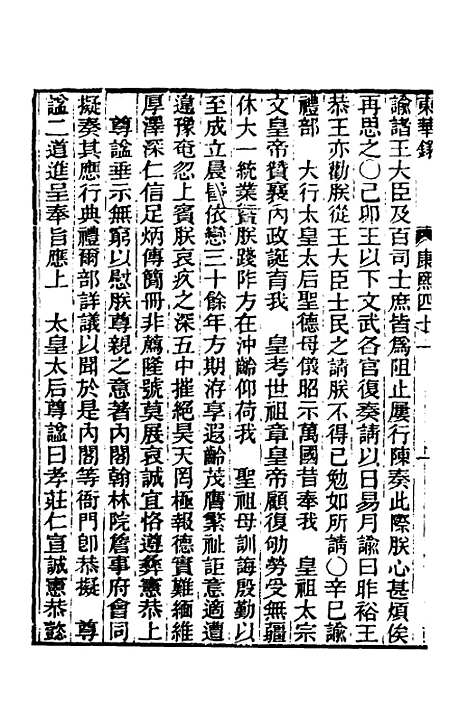 東華錄 康熙四十一 上
諭諸王大臣及百司士庶皆爲阻止屢行陳奏此際朕心甚煩俟
再思之〇己卯王以下文武各官復奏請以日易月諭曰昨裕王
恭王亦勸朕從王大臣士民之請朕不得已勉如所請〇辛巳諭
禮部 大行太皇太后聖德母儀昭示萬國昔奉我 皇祖太宗
文皇帝贊襄內政誕育我 皇考世祖章皇帝顧復劬勞受無疆
休大一統業暨朕踐阼方在沖齡仰荷我 聖祖母訓誨殷勤以
至成立晨昏依戀三十餘年方期洊享遐齡茂膺繁祉詎意適遭
違豫奄忽上賓朕哀疚之深五中摧絕昊天罔極報德實難緬維
厚澤深仁信足炳傳簡冊非薦隆號莫展哀誠宜恪遵彝憲恭上
尊諡垂示無窮以慰朕尊親之意著內閣翰林院詹事府會同
擬奏其應行典禮爾部詳議以聞於是內閣等衙門卽恭擬 尊
諡二道進呈奉旨應上 太皇太后尊諡曰孝莊仁宣誠憲恭懿